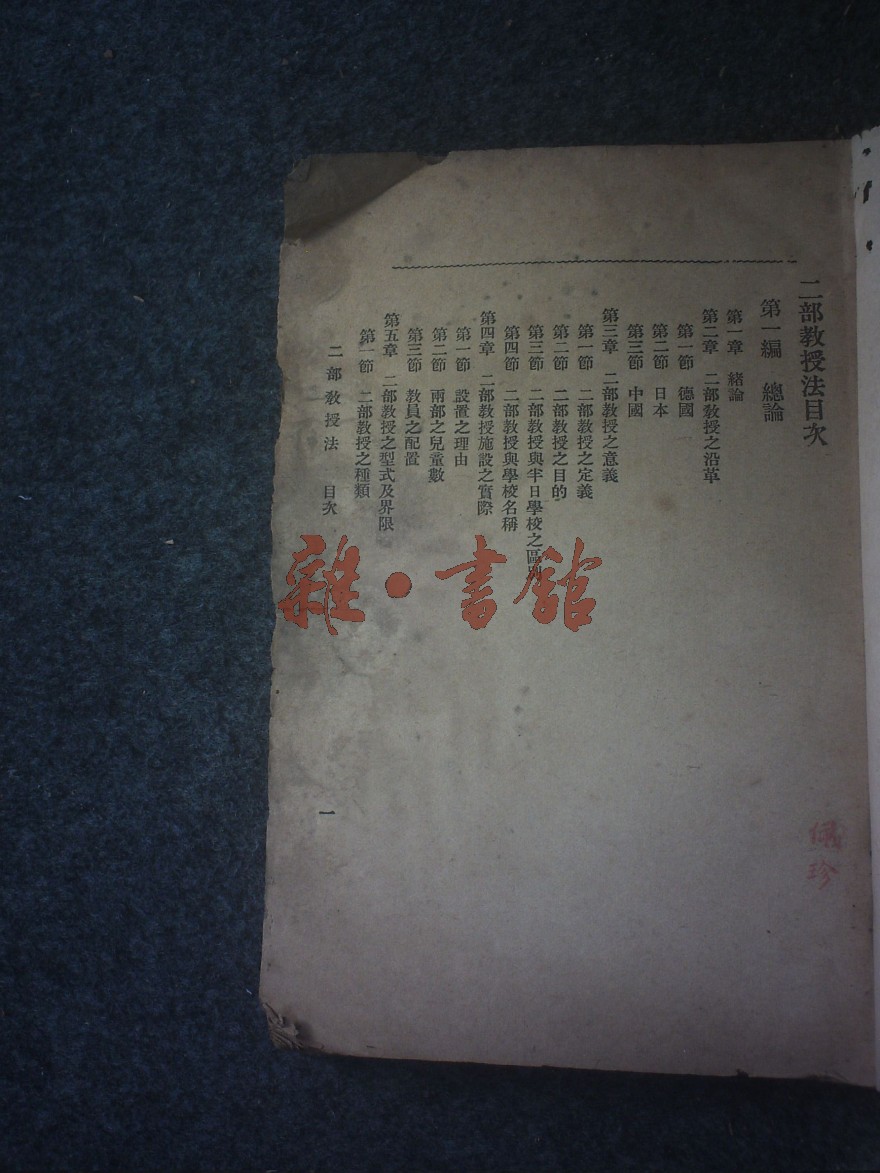 二部教授法目次
第一編　總論
第一章　緒論
第二章　二部教授之沿革
第一節　德國
第二節　日本
第三節　中國
第三章　二部教授之意義
第一節　二部教授之定義
第二節　二部教授之目的
第三節　二部教授與半日學校之區別
第四節　二部教授與學校名稱
第四章　二部教授施設之實際
第一節　設置之理由
第二節　兩部之兒童數
第三節　教員之配置
第五章　二部教授之型式及界限
第一節　二部教授之種類
二部教授法　目次
一
雜·書館
珍